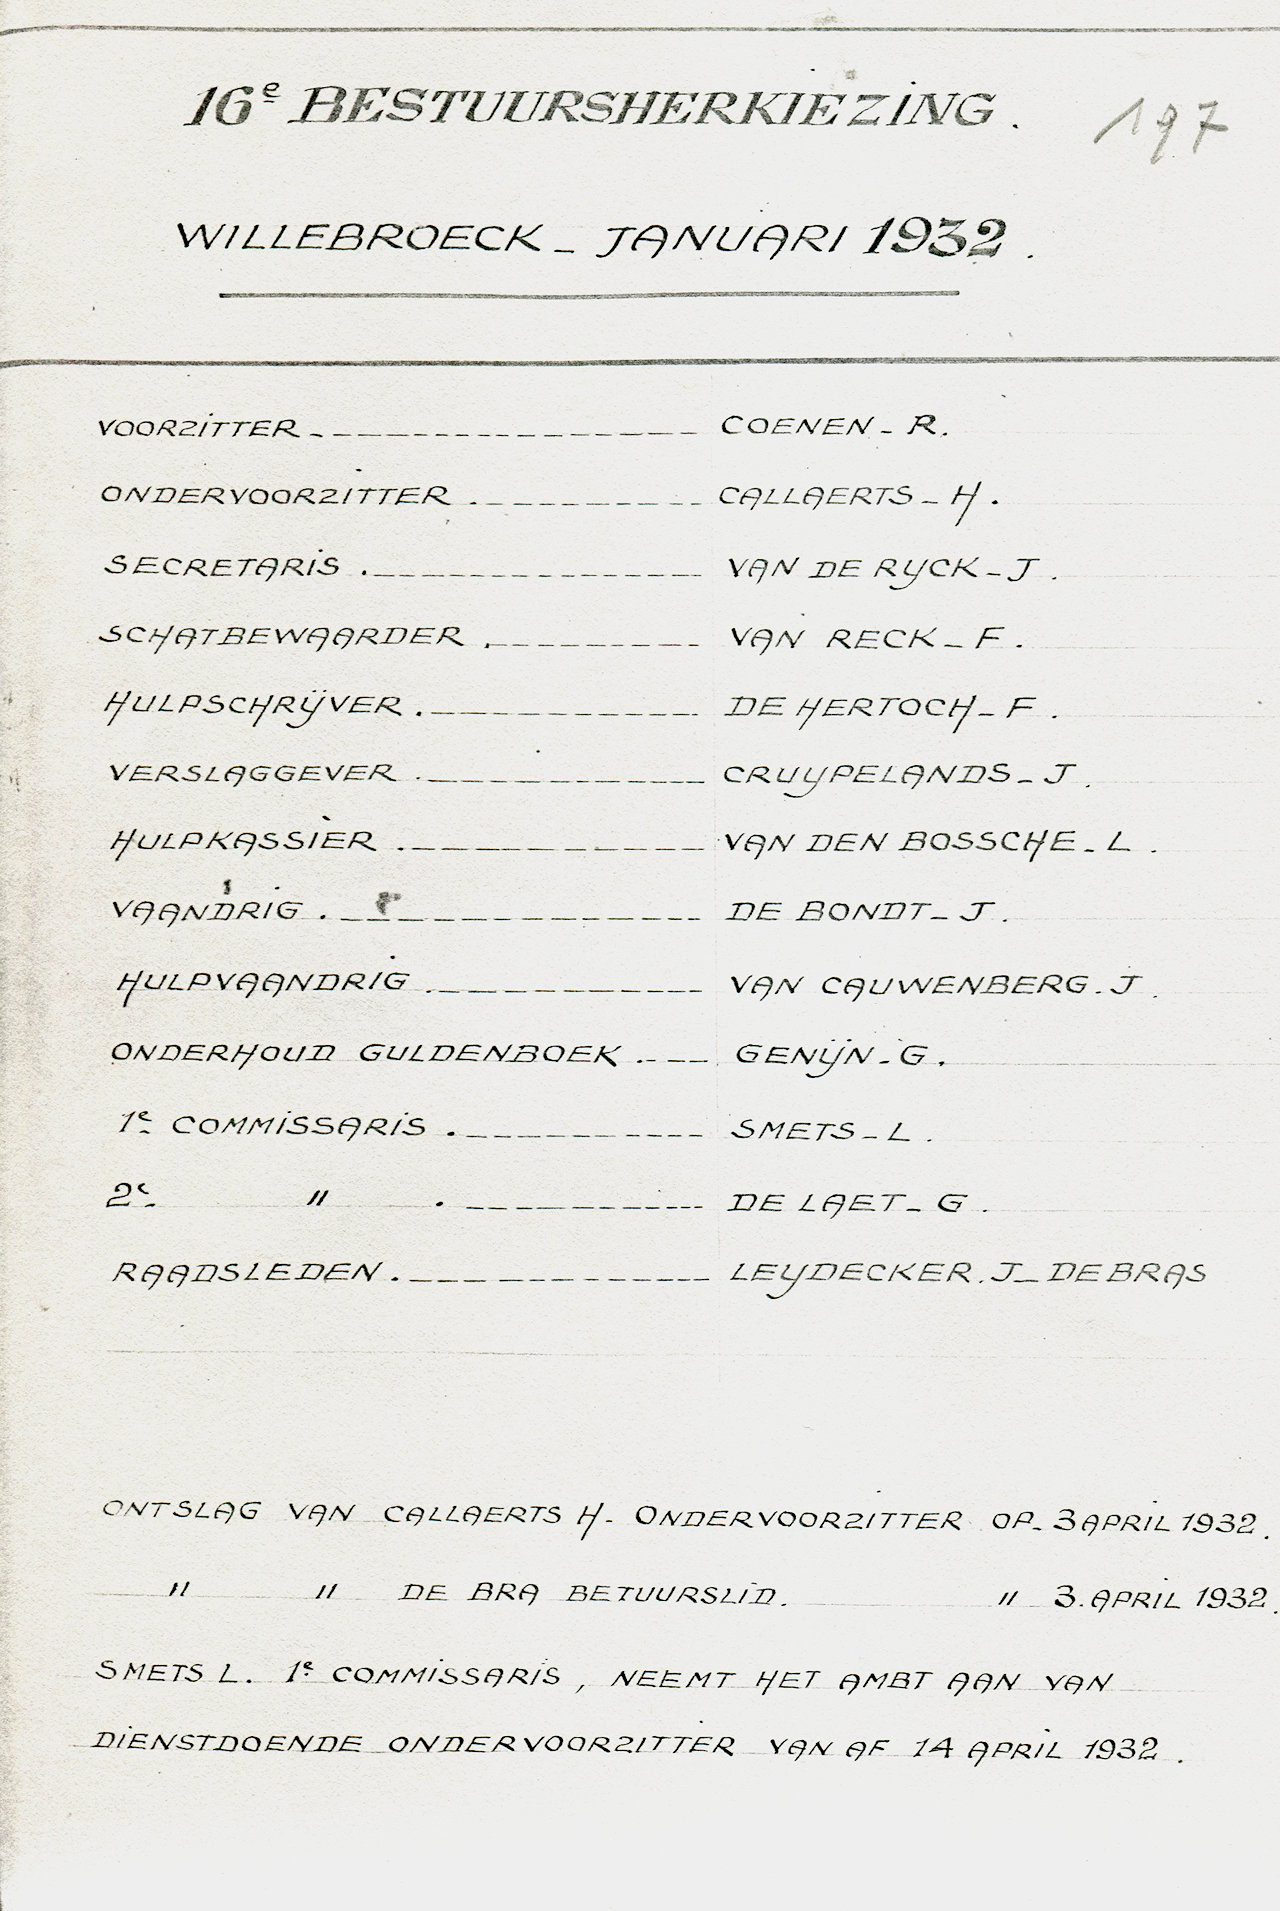 16e BESTUURSHERKIEZING.
197
WILLEBROECK - JANUARI 1932.
VOORZITTER COENEN - R.
ONDERVOORZITTER CALLAERTS - H.
SECRETARIS VAN DE RYCK - J.
SCHATBEWAARDER VAN RECK - F.
HULPSCHRIJVER DE HERTOCH - F.
VERSLAGGEVER CRUYPELANDS - J.
HULPKASSIER VAN DEN BOSSCHE - L.
VAANDRIG DE BONDT - J.
HULPVAANDRIG VAN CAUWENBERG. J.
ONDERHOUD GULDENBOEK GENIJN - G.
1e COMMISSARIS SMETS - L.
2e " DE LAET - G.
RAADSLEDEN LEYDECKER. J - DE BRAS
ONTSLAG VAN CALLAERTS H. ONDERVOORZITTER OP - 3 APRIL 1932.
" " DE BRA BETUURSLID. " 3. APRIL 1932.
SMETS L. 1e COMMISSARIS, NEEMT HET AMBT AAN VAN
DIENSTDOENDE ONDERVOORZITTER VAN AF 14 APRIL 1932.